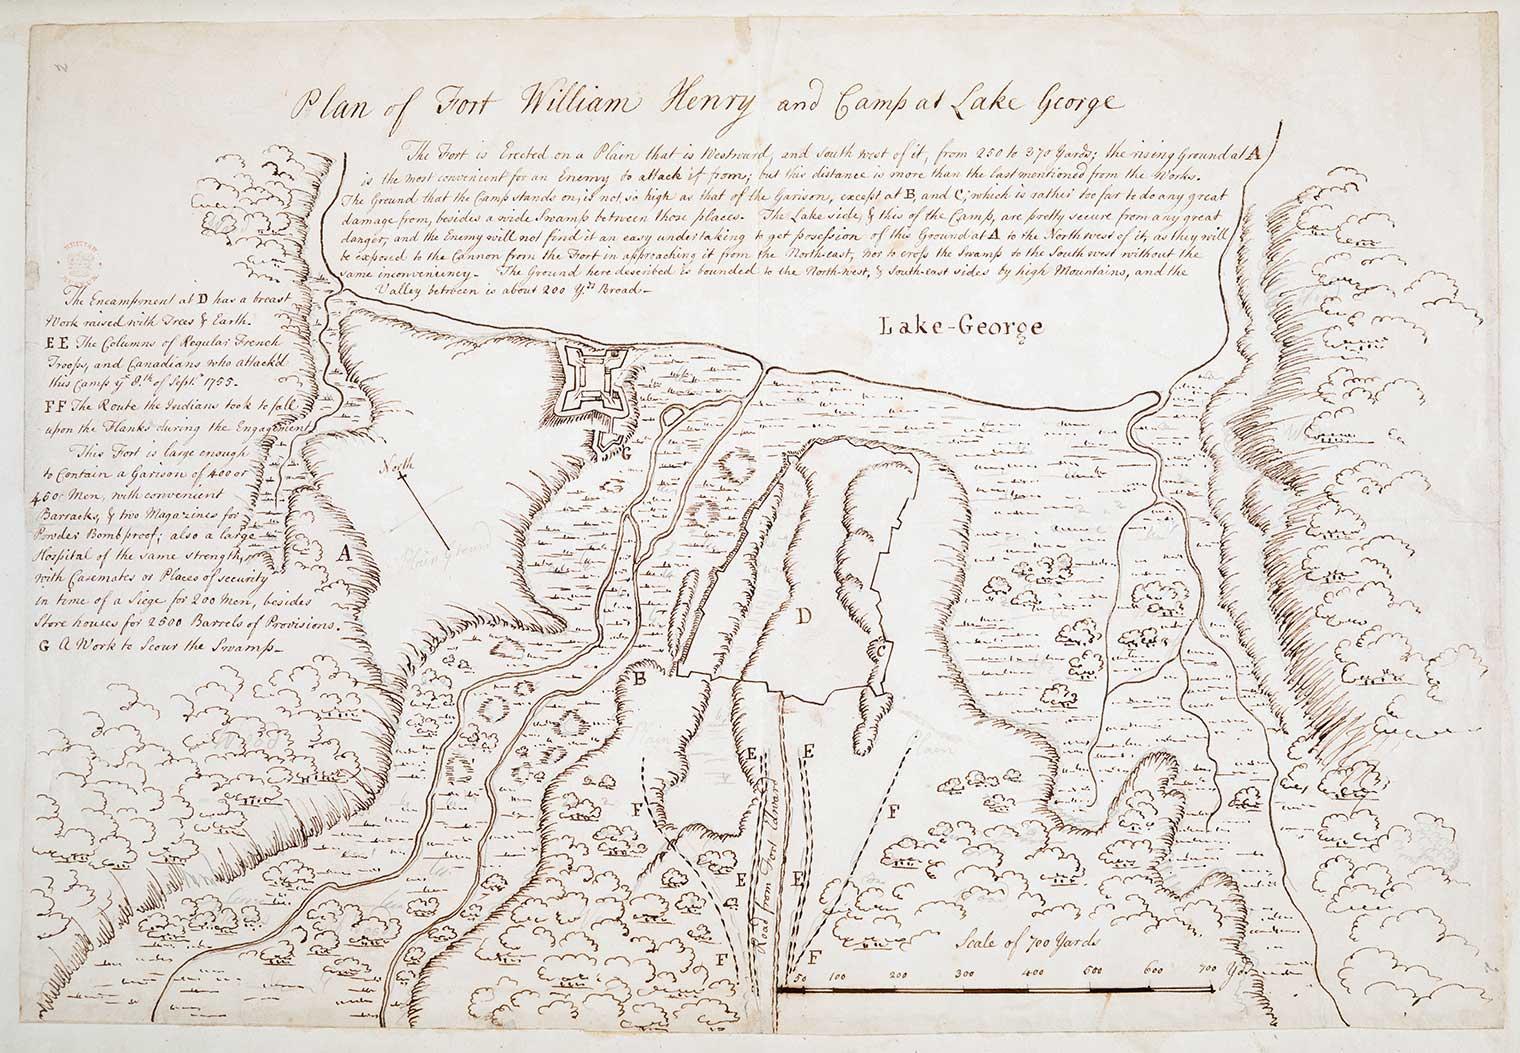 Plan of Fort William Henry and Camp at Lake George
The Fort is Erected on a Plain that is Westward, and South west of it, from 250 to 370 Yards; the rising Ground at A
is the most convenient for an Enemy to attack it from; but this distance is more than the last mentioned from the Works.
The Ground that the Camp stands on, is not so high as that of the Garison, except at B, and C; which is rather too far to do any great
damage from, besides a wide Swamp between those places. The Lake side, & this of the Camp, are pretty secure from any great
danger, and the Enemy will not find it an easy undertaking to get posession of this Ground at A to the North west of it, as they will
be exposed to the Cannon from the Fort in approaching it from the North-east, nor to cross the Swamp to the South west without the
same inconveniency. The Ground here described is bounded to the North-west, & South-east sides by high Mountains, and the
Valley between is about 200 Yds. Broad.
Lake-George
The Encampment at D has a breast
Work raised with Trees & Earth.
EE The Columns of Regular French
Troops, and Canadians who attack'd
this Camp ye 8th of Septr. 1755.
FF The Route the Indians took to fall
upon the Flanks during the Engagement
This Fort is large enough
to Contain a Garison of 400 or
450 Men, with convenient
Barracks, & two Magazines for
Powder Bomb proof; also a large
Hospital of the same strength,
with Casemates or Places of security
in time of a Siege for 200 Men, besides
Store houses for 2500 Barrels of Provisions.
G A Work to Scour the Swamp
G
North
A
Plain Ground
D
C
B
Plain
E
E
F
F
Road from Fort Edward
E
E
F
F
Scale of 700 Yards
50 100 200 300 400 600 600 700